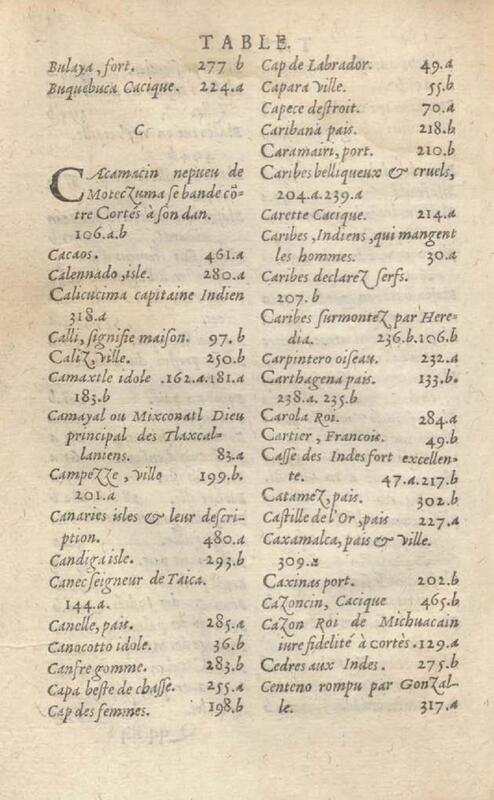 TABLE.
Bulaya, fort. 277 b
Buquebuca Cacique. 224.a
C
CAcamacin nepueu de
Moteczuma se bande cõ-
tre Cortés à son dan.
106.a.b
Cacaos. 461.a
Calennado, isle. 280.a
Calicucima capitaine Indien
318.a
Calli, signifie maison. 97. b
Caliz, ville. 250.b
Camaxtle idole .162.a.181.a
183.b
Camayal ou Mixconatl Dieu
principal des Tlaxcal-
laniens. 83.a
Campezze, ville 199.b.
201.a
Canaries isles & leur descri-
ption. 480.a
Candiga isle. 293.b
Canec seigneur de Taica.
144.a.
Canelle, pais. 285.a
Canocotto idole. 36.b
Canfre gomme. 283.b
Capa beste de chasse. 255.a
Cap des femmes. 198.b
Cap de Labrador. 49.a
Capara ville. 55.b
Capece destroit. 70.a
Caribana pais. 218.b
Caramairi, port. 210.b
Caribes belliqueux & cruels,
204.a.239.a
Carette Cacique. 214.a
Caribes, Indiens, qui mangent
les hommes. 30.a
Caribes declarez serfs.
207. b
Caribes surmontez par Here-
dia. 236.b.106.b
Carpintero oiseau. 232.a
Carthagena pais. 133.b.
238.a. 235.b
Carola Roi. 284.a
Cartier, Francois. 49.b
Casse des Indes fort excellen-
te. 47.a.217.b
Catamez, pais. 302.b
Castille de l'Or, pais 227.a
Caxamalca, pais & ville.
309.a
Caxinas port. 202.b
Cazoncin, Cacique 465.b
Cazon Roi de Michuacain
iure fidelité à cortès .129.a
Cedres aux Indes. 275.b
Centeno rompu par Gonzal-
le. 317.a